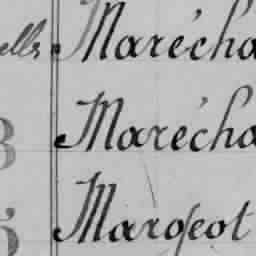 ells Marécha
3 Marécha
5 Margeot